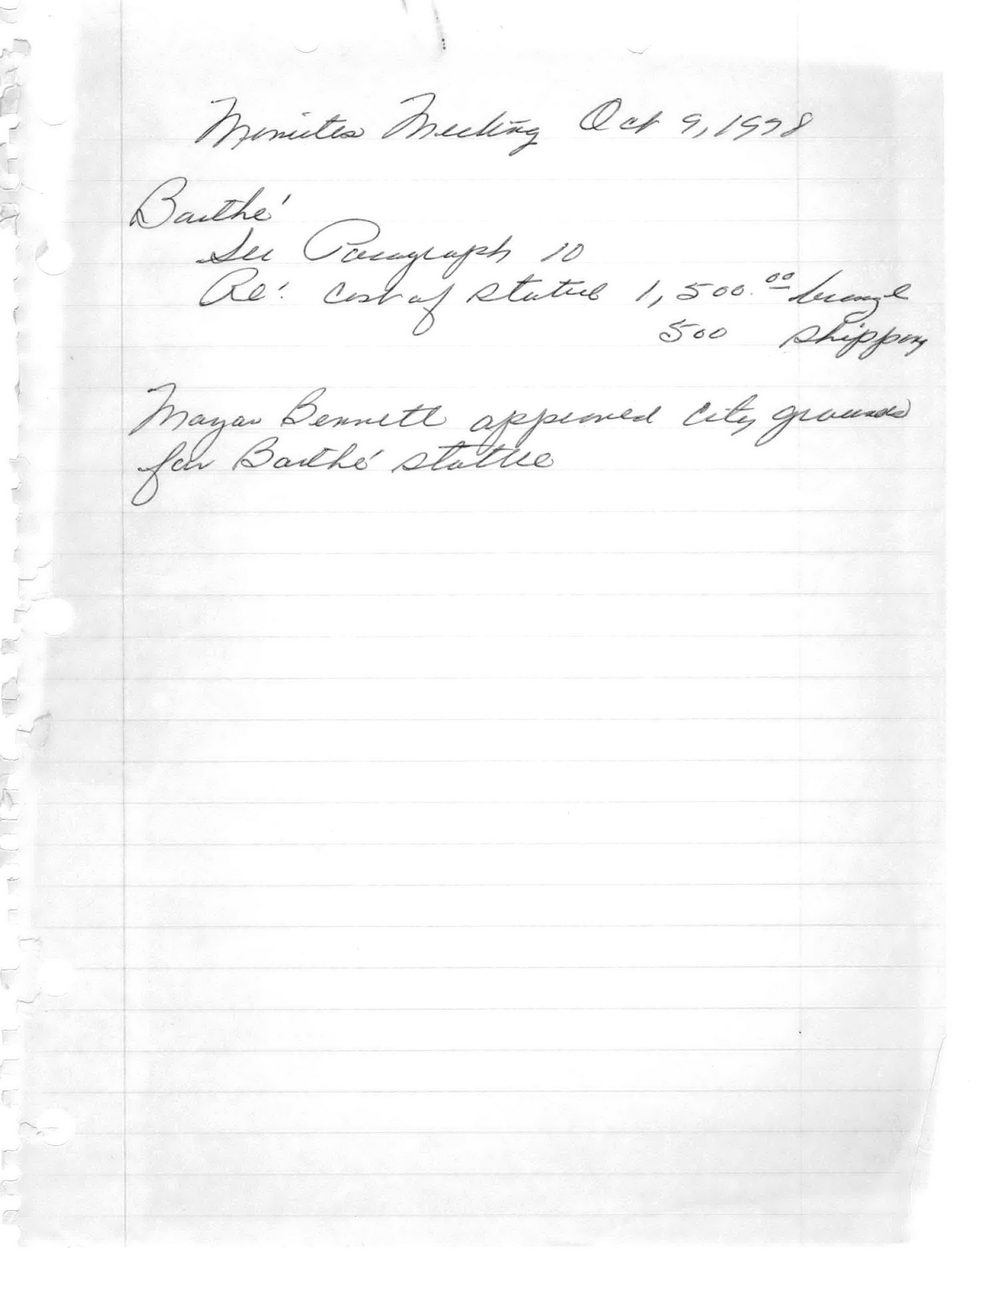 Minutes Meeting Oct 9, 1978
Barthé
See Paragraph 10
Re: cost of statue 1,500.00 bronze
500 shipping
Mayor Bennett approved city grounds
for Barthé statue